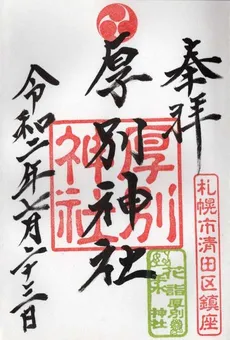 奉拝
札幌市清田区鎮座
厚別神社
厚別
神社
花詣
厚別
神社
令和二年七月二十三日